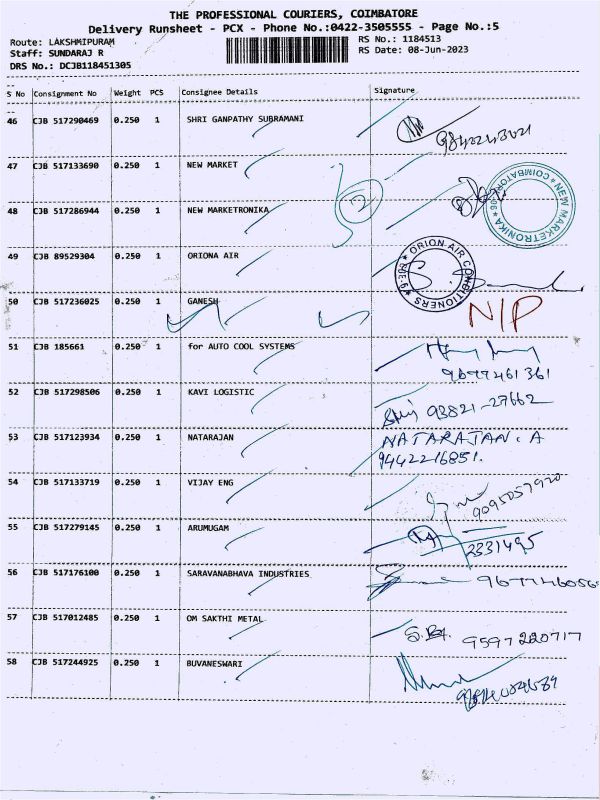 THE PROFESSIONAL COURIERS, COIMBATORE
Delivery Runsheet - PCX - Phone No.:0422-3505555 - Page No.:5
Route: LAKSHMIPURAM RS No.: 1184513
Staff: SUNDARAJ R RS Date: 08-Jun-2023
DRS No.: DCJB118451305
S No Consignment No Weight PCS Consignee Details Signature
46 CJB 517290469 0.250 1 SHRI GANPATHY SUBRAMANI
47 CJB 517133690 0.250 1 NEW MARKET
2
NEW MARKETRONIKA * COIMBATORE
48 CJB 517286944 0.250 1 NEW MARKETRONIKA
49 CJB 89529304 0.250 1 ORIONA AIR
ORION AIR CONDITIONERS * CBE-6 *
50 CJB 517236025 0.250 1 GANESH N/P
51 CJB 185661 0.250 1 for AUTO COOL SYSTEMS
9677461361
52 CJB 517298506 0.250 1 KAVI LOGISTIC 93821-27662
53 CJB 517123934 0.250 1 NATARAJAN NATARAJAN. A
9442216851.
54 CJB 517133719 0.250 1 VIJAY ENG
9095057920
55 CJB 517279145 0.250 1 ARUMUGAM
2331495
56 CJB 517176100 0.250 1 SARAVANABHAVA INDUSTRIES
57 CJB 517012485 0.250 1 OM SAKTHI METAL
9597220717
58 CJB 517244925 0.250 1 BUVANESWARI